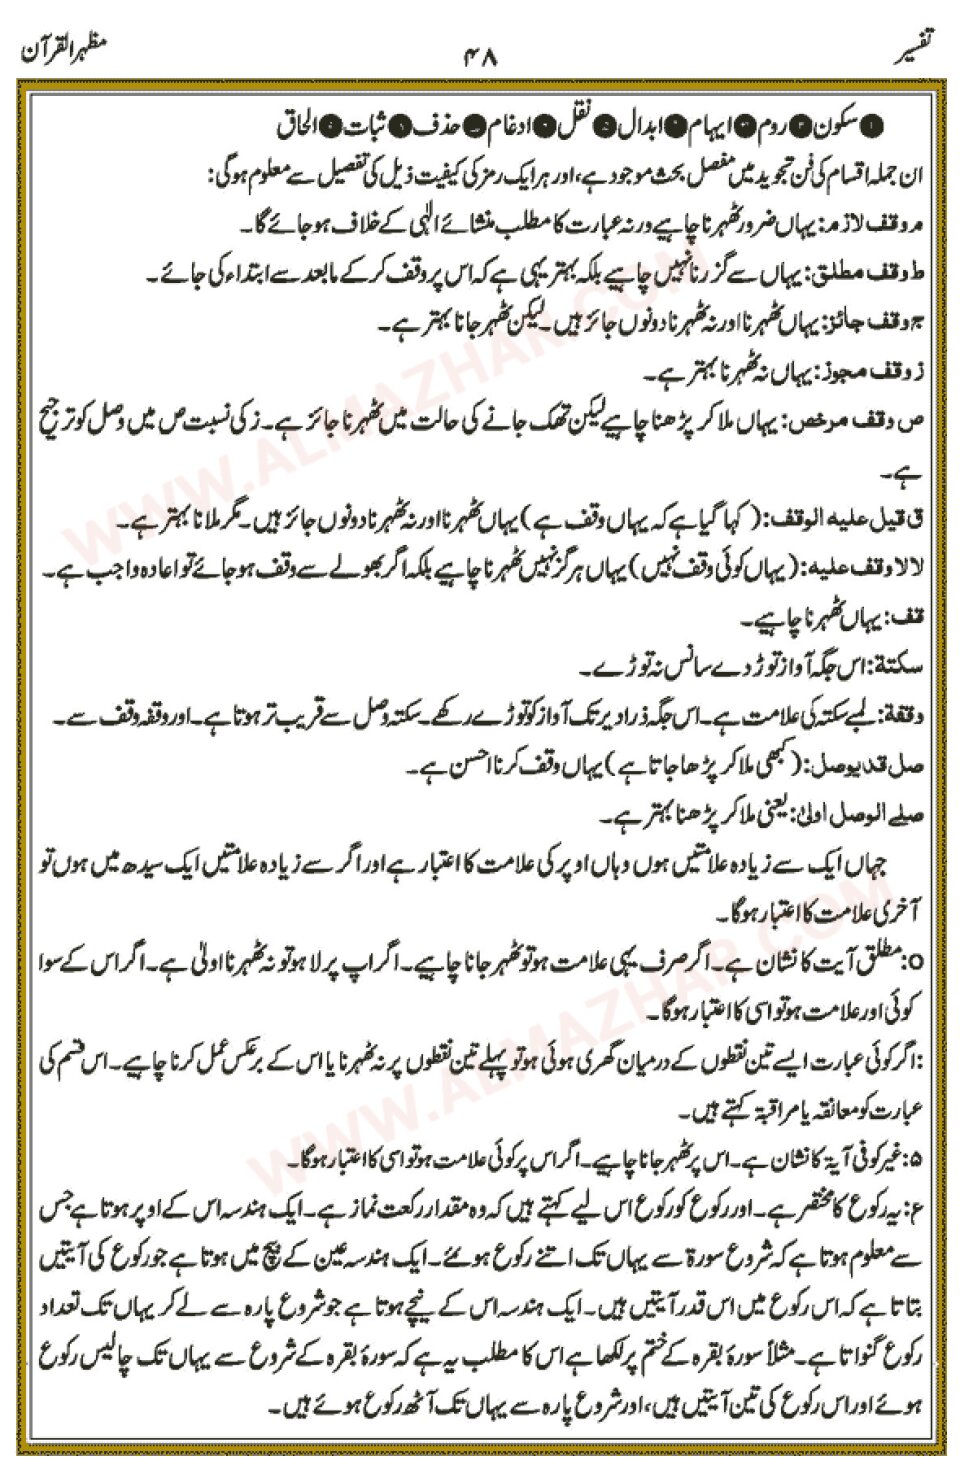 تفسیر ۴۸ مظہرالقرآن
❶ سکون ❷ روم ❸ ایہام ❹ ابدال ❺ نقل ❻ ادغام ❼ حذف ❽ ثبات ❾ الحاق
ان جملہ اقسام کی فن تجوید میں مفصل بحث موجود ہے، اور ہر ایک رمز کی کیفیت ذیل کی تفصیل سے معلوم ہوگی:
م وقف لازم: یہاں ضرور ٹھہرنا چاہیے ورنہ عبارت کا مطلب منشائے الٰہی کے خلاف ہو جائے گا۔
ط وقف مطلق: یہاں سے گزرنا نہیں چاہیے بلکہ بہتر یہی ہے کہ اس پر وقف کر کے مابعد سے ابتداء کی جائے۔
ج وقف جائز: یہاں ٹھہرنا اور نہ ٹھہرنا دونوں جائز ہیں۔ لیکن ٹھہر جانا بہتر ہے۔
ز وقف مجوز: یہاں نہ ٹھہرنا بہتر ہے۔
ص وقف مرخص: یہاں ملا کر پڑھنا چاہیے لیکن تھک جانے کی حالت میں ٹھہرنا جائز ہے۔ ز کی نسبت ص میں وصل کو ترجیح
ہے۔
ق قیل علیه الوقف: (کہا گیا ہے کہ یہاں وقف ہے) یہاں ٹھہرنا اور نہ ٹھہرنا دونوں جائز ہیں۔ مگر ملانا بہتر ہے۔
لا لا وقف علیه: (یہاں کوئی وقف نہیں) یہاں ہرگز نہیں ٹھہرنا چاہیے بلکہ اگر بھولے سے وقف ہو جائے تو اعادہ واجب ہے۔
قف: یہاں ٹھہرنا چاہیے۔
سکتة: اس جگہ آواز توڑ دے سانس نہ توڑے۔
وقفة: لمبے سکتہ کی علامت ہے۔ اس جگہ ذرا دیر تک آواز کو توڑے رکھے۔ سکتہ وصل سے قریب تر ہوتا ہے۔ اور وقفہ وقف سے۔
صل قد یوصل: (کبھی ملا کر پڑھا جاتا ہے) یہاں وقف کرنا احسن ہے۔
صلے الوصل اولیٰ: یعنی ملا کر پڑھنا بہتر ہے۔
جہاں ایک سے زیادہ علامتیں ہوں وہاں اوپر کی علامت کا اعتبار ہے اور اگر سے زیادہ علامتیں ایک سیدھ میں ہوں تو
آخری علامت کا اعتبار ہوگا۔
o: مطلق آیت کا نشان ہے۔ اگر صرف یہی علامت ہو تو ٹھہر جانا چاہیے۔ اگر اپ پر لا ہو تو نہ ٹھہرنا اولیٰ ہے۔ اگر اس کے سوا
کوئی اور علامت ہو تو اسی کا اعتبار ہوگا۔
:اگر کوئی عبارت ایسے تین نقطوں کے درمیان گھری ہوئی ہو تو پہلے تین نقطوں پر نہ ٹھہرنا یا اس کے برعکس عمل کرنا چاہیے۔ اس قسم کی
عبارت کو معانقہ یا مراقبۃ کہتے ہیں۔
۵: غیر کوفی آیۃ کا نشان ہے۔ اس پر ٹھہر جانا چاہیے۔ اگر اس پر کوئی علامت ہو تو اسی کا اعتبار ہوگا۔
ع: یہ رکوع کا مختصر ہے۔ اور رکوع کو رکوع اس لیے کہتے ہیں کہ وہ مقدار رکعت نماز ہے۔ ایک ہندسہ اس کے اوپر ہوتا ہے جس
سے معلوم ہوتا ہے کہ شروع سورۃ سے یہاں تک اتنے رکوع ہو گئے۔ ایک ہندسہ عین کے بیچ میں ہوتا ہے جو رکوع کی آیتیں
بتاتا ہے کہ اس رکوع میں اس قدر آیتیں ہیں۔ ایک ہندسہ اس کے نیچے ہوتا ہے جو شروع پارہ سے لے کر یہاں تک تعداد
رکوع گنواتا ہے۔ مثلاً سورۂ بقرہ کے ختم پر لکھا ہے اس کا مطلب یہ ہے کہ سورۂ بقرہ کے شروع سے یہاں تک چالیس رکوع
ہوئے اور اس رکوع کی تین آیتیں ہیں، اور شروع پارہ سے یہاں تک آٹھ رکوع ہوئے ہیں۔
WWW.ALMAZHAR.COM
WWW.ALMAZHAR.COM